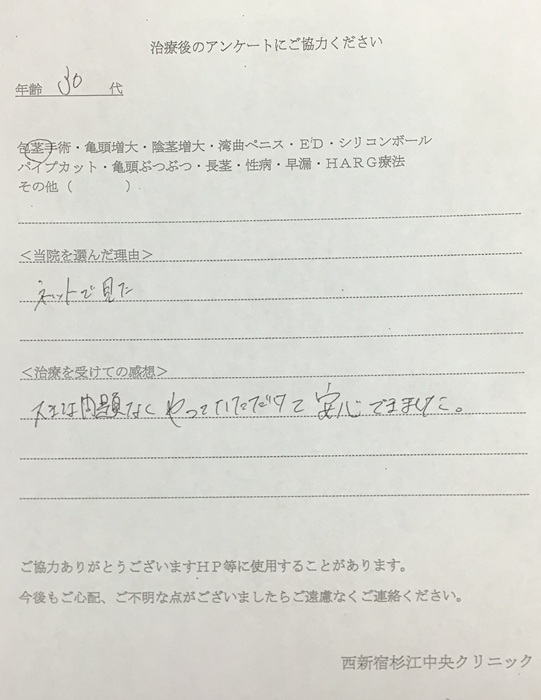 治療後のアンケートにご協力ください
年齢 30 代
包茎手術・亀頭増大・陰茎増大・湾曲ペニス・ED・シリコンボール
パイプカット・亀頭ぶつぶつ・長茎・性病・早漏・HARG療法
その他（　　　）
＜当院を選んだ理由＞
ネットで見た
＜治療を受けての感想＞
大きな問題なくやっていただけて安心できました。
ご協力ありがとうございますHP等に使用することがあります。
今後もご心配、ご不明な点がございましたらご遠慮なくご連絡ください。
西新宿杉江中央クリニック